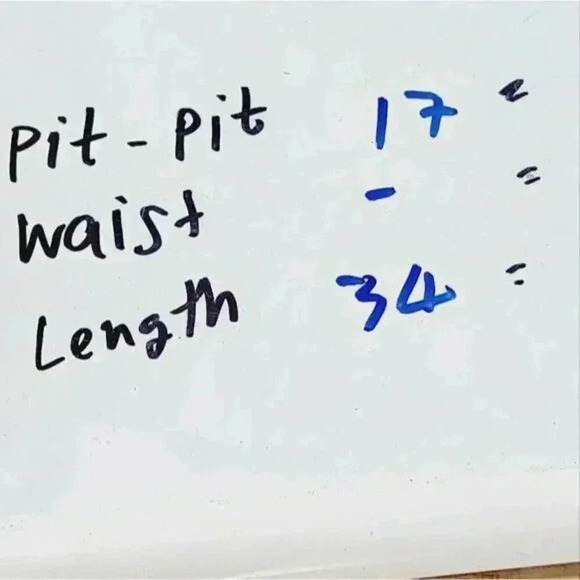 pit - pit 17 "
waist - "
Length 34 "